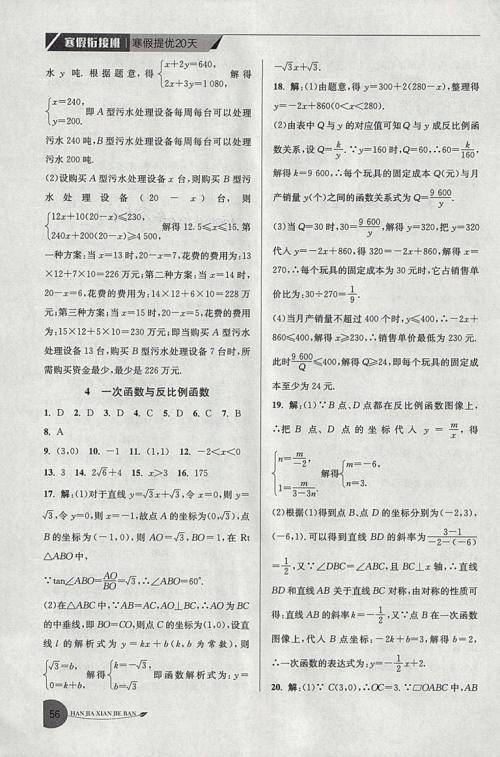 寒假衔接班 寒假提优20天
水 y 吨. 根据题意, 得 {x+2y=640, 2x+3y=1 080, 解得
{x=240, y=200. 即 A 型污水处理设备每周每台可以处理
污水 240 吨, B 型污水处理设备每周每台可以处理
污水 200 吨.
(2)设购买 A 型污水处理设备 x 台, 则购买 B 型污
水处理设备(20-x)台, 则
{12x+10(20-x)≤230, 240x+200(20-x)≥4 500, 解得 12.5≤x≤15. 第
一种方案:当 x=13 时, 20-x=7, 花费的费用为:13
×12+7×10=226 万元;第二种方案:当 x=14 时,
20-x=6, 花费的费用为:14×12+6×10=228 万
元;第三种方案:当 x=15 时, 20-x=5, 花费的费用
为:15×12+5×10=230 万元;即当购买 A 型污水
处理设备 13 台, 购买 B 型污水处理设备 7 台时, 所
需购买资金最少, 最少是 226 万元.
4 一次函数与反比例函数
1. D 2. D 3. D 4. D 5. D 6. B 7. D
8. A
9. (3,0) 10. -1 11. (1,1) 12. -2<x<0
13. 3 14. 2√6+4 15. x>3 16. 175
17. 解:(1)对于直线 y=√3x+√3, 令 x=0, 则 y=
√3, 令 y=0, 则 x=-1, 故点 A 的坐标为(0,√3), 点
B 的坐标为(-1,0), 则 AO=√3, BO=1, 在 Rt
△ABO 中,
∵tan∠ABO=AO/BO=√3, ∴∠ABO=60°.
(2)在△ABC 中, ∵AB=AC, AO⊥BC, ∴AO 为 BC
的中垂线, 即 BO=CO, 则点 C 的坐标为(1,0), 设直
线 l 的解析式为 y=kx+b(k,b 为常数), 则
{√3=b, 0=k+b, 解得 {k=-√3, b=√3, 即函数解析式为:y=
-√3x+√3.
18. 解:(1)由题意, 得 y=300+2(280-x), 整理得
y=-2x+860(0<x<280).
(2)由表中 Q 与 y 的对应值可知 Q 与 y 成反比例函
数关系, 设 Q=k/y. ∵y=160 时, Q=60, ∴60=k/160,
解得 k=9 600, ∴每个玩具的固定成本 Q(元)与月
产销量 y(个)之间的函数关系式为 Q=9 600/y.
(3)当 Q=30 时, 30=9 600/y, 解得 y=320, 把 y=320
代入 y=-2x+860, 得 320=-2x+860, 解得 x=
270. ∴每个玩具的固定成本为 30 元时, 它占销售单
价的比为:30÷270=1/9.
(4)当月产销量不超过 400 个时, y≤400, ∴-2x+
860≤400, 解得 x≥230, ∴销售单价最低为 230 元.
此时9 600/Q≤400, 解得 Q≥24, 即每个玩具的固定成
本至少为 24 元.
19. 解:(1)∵B 点、D 点都在反比例函数图像上,
∴把 B 点、D 点的坐标代入 y=m/x, 得
{n=m/-2, 1=m/3-3n, 解得{m=-6, n=3.
(2)根据(1)得到点 B、点 D 的坐标分别为(-2,3),
(-6,1). 可以得到直线 BD 的斜率为3-1/-2-(-6)
=1/2, 又∵∠DBC=∠ABC, 且 BC⊥x 轴, ∴直线
BD 和直线 AB 关于直线 BC 对称, 由对称的性质可
得:直线 AB 的斜率 k=-1/2, 又∵点 B 在一次函数
图像上, 代入点 B 坐标:-2k+b=3, 解得 b=2,
∴一次函数的表达式为:y=-1/2x+2.
20. 解:(1)∵C(3,0), ∴OC=3. ∵▱OABC 中, AB
56 HAN JIA XIAN JIE BAN